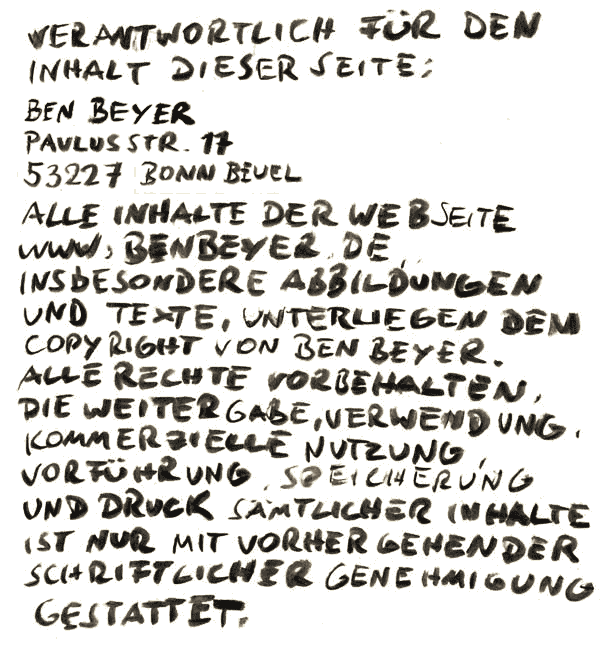 VERANTWORTLICH FÜR DEN
INHALT DIESER SEITE:
BEN BEYER
PAULUSSTR. 17
53227 BONN BEUEL
ALLE INHALTE DER WEBSEITE
WWW.BENBEYER.DE,
INSBESONDERE ABBILDUNGEN
UND TEXTE, UNTERLIEGEN DEM
COPYRIGHT VON BEN BEYER.
ALLE RECHTE VORBEHALTEN,
DIE WEITERGABE, VERWENDUNG,
KOMMERZIELLE NUTZUNG,
VORFÜHRUNG, SPEICHERUNG
UND DRUCK SÄMTLICHER INHALTE
IST NUR MIT VORHERGEHENDER
SCHRIFTLICHER GENEHMIGUNG
GESTATTET.